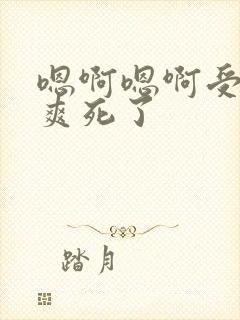 嗯啊嗯啊受
爽死了
踏月